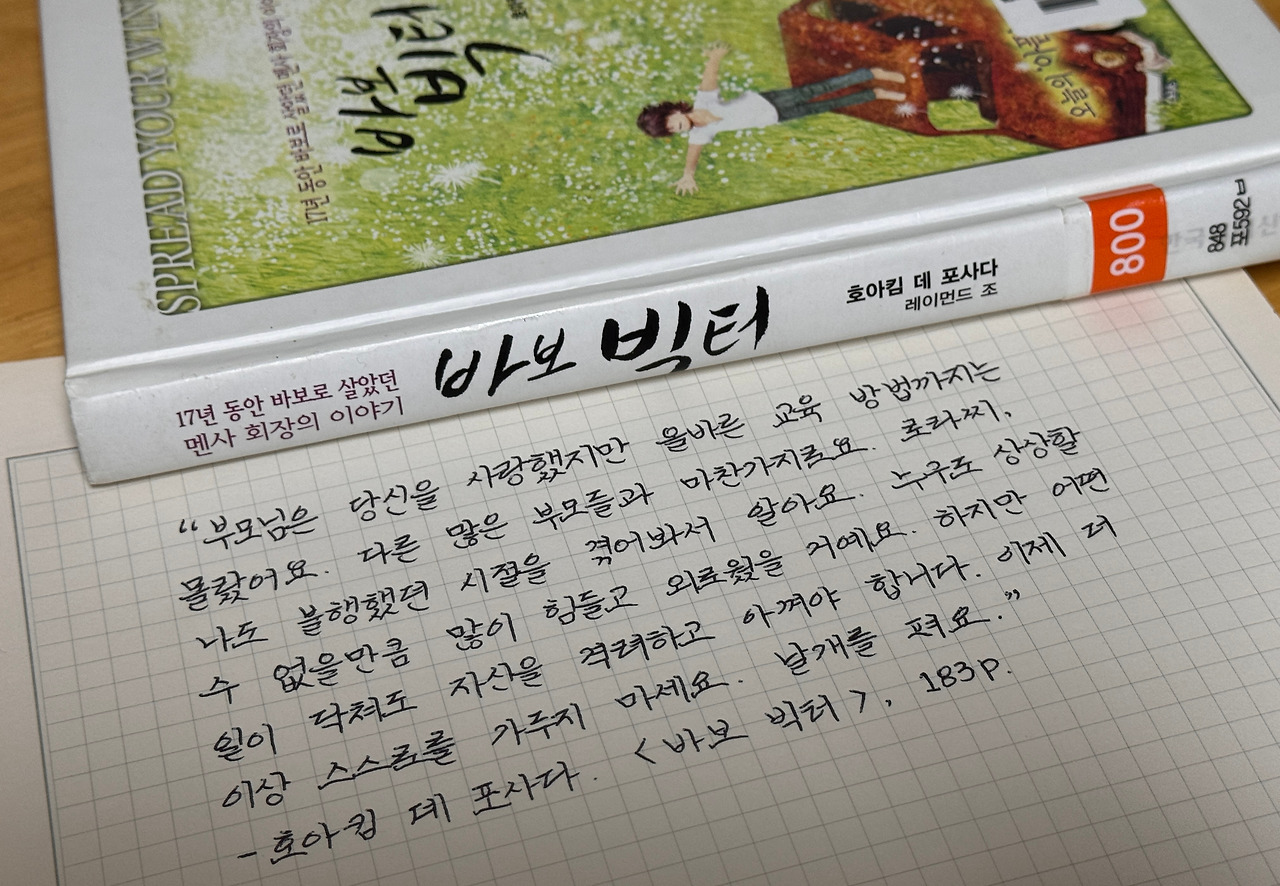 SPREAD YOUR WIN
17년 동안 바보로 살았던 멘사 회장의 이야
바보
빅터
17년 동안 바보로 살았던
멘사 회장의 이야기
바보 빅터
호아킴 데 포사다
레이먼드 조
800
848
포592ㅂ
“부모님은 당신을 사랑했지만 올바른 교육 방법까지는
몰랐어요. 다른 많은 부모들과 마찬가지로요. 로라씨,
나도 불행했던 시절을 겪어봐서 알아요. 누구도 상상할
수 없을만큼 많이 힘들고 외로웠을 거예요. 하지만 어떤
일이 닥쳐도 자신을 격려하고 아껴야 합니다. 이제 더
이상 스스로를 가두지 마세요. 날개를 펴요.”
- 호아킴 데 포사다. <바보 빅터>, 183p.